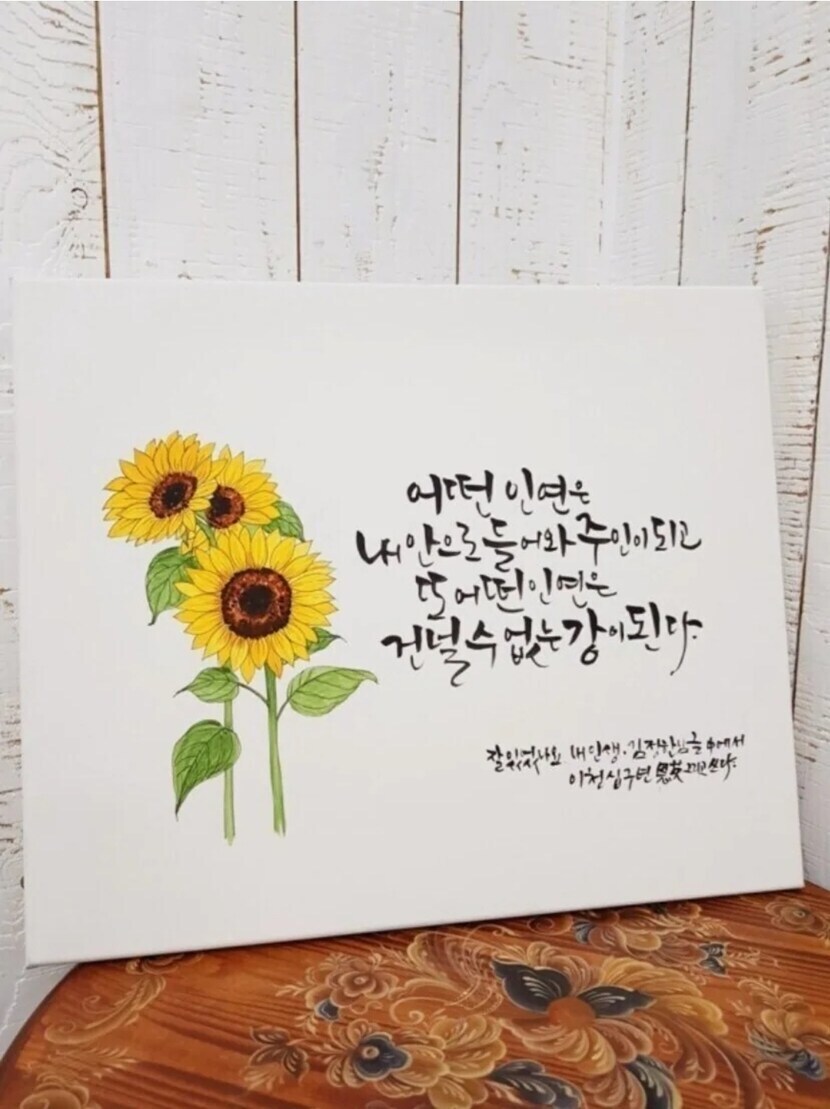 어떤 인연은
내 안으로 들어와 주인이 되고
또 어떤 인연은
건널 수 없는 강이 된다.
잘 있었나요 내 인생. 김정한님 글 中에서
이천십구년 恩英 그리고 쓰다.